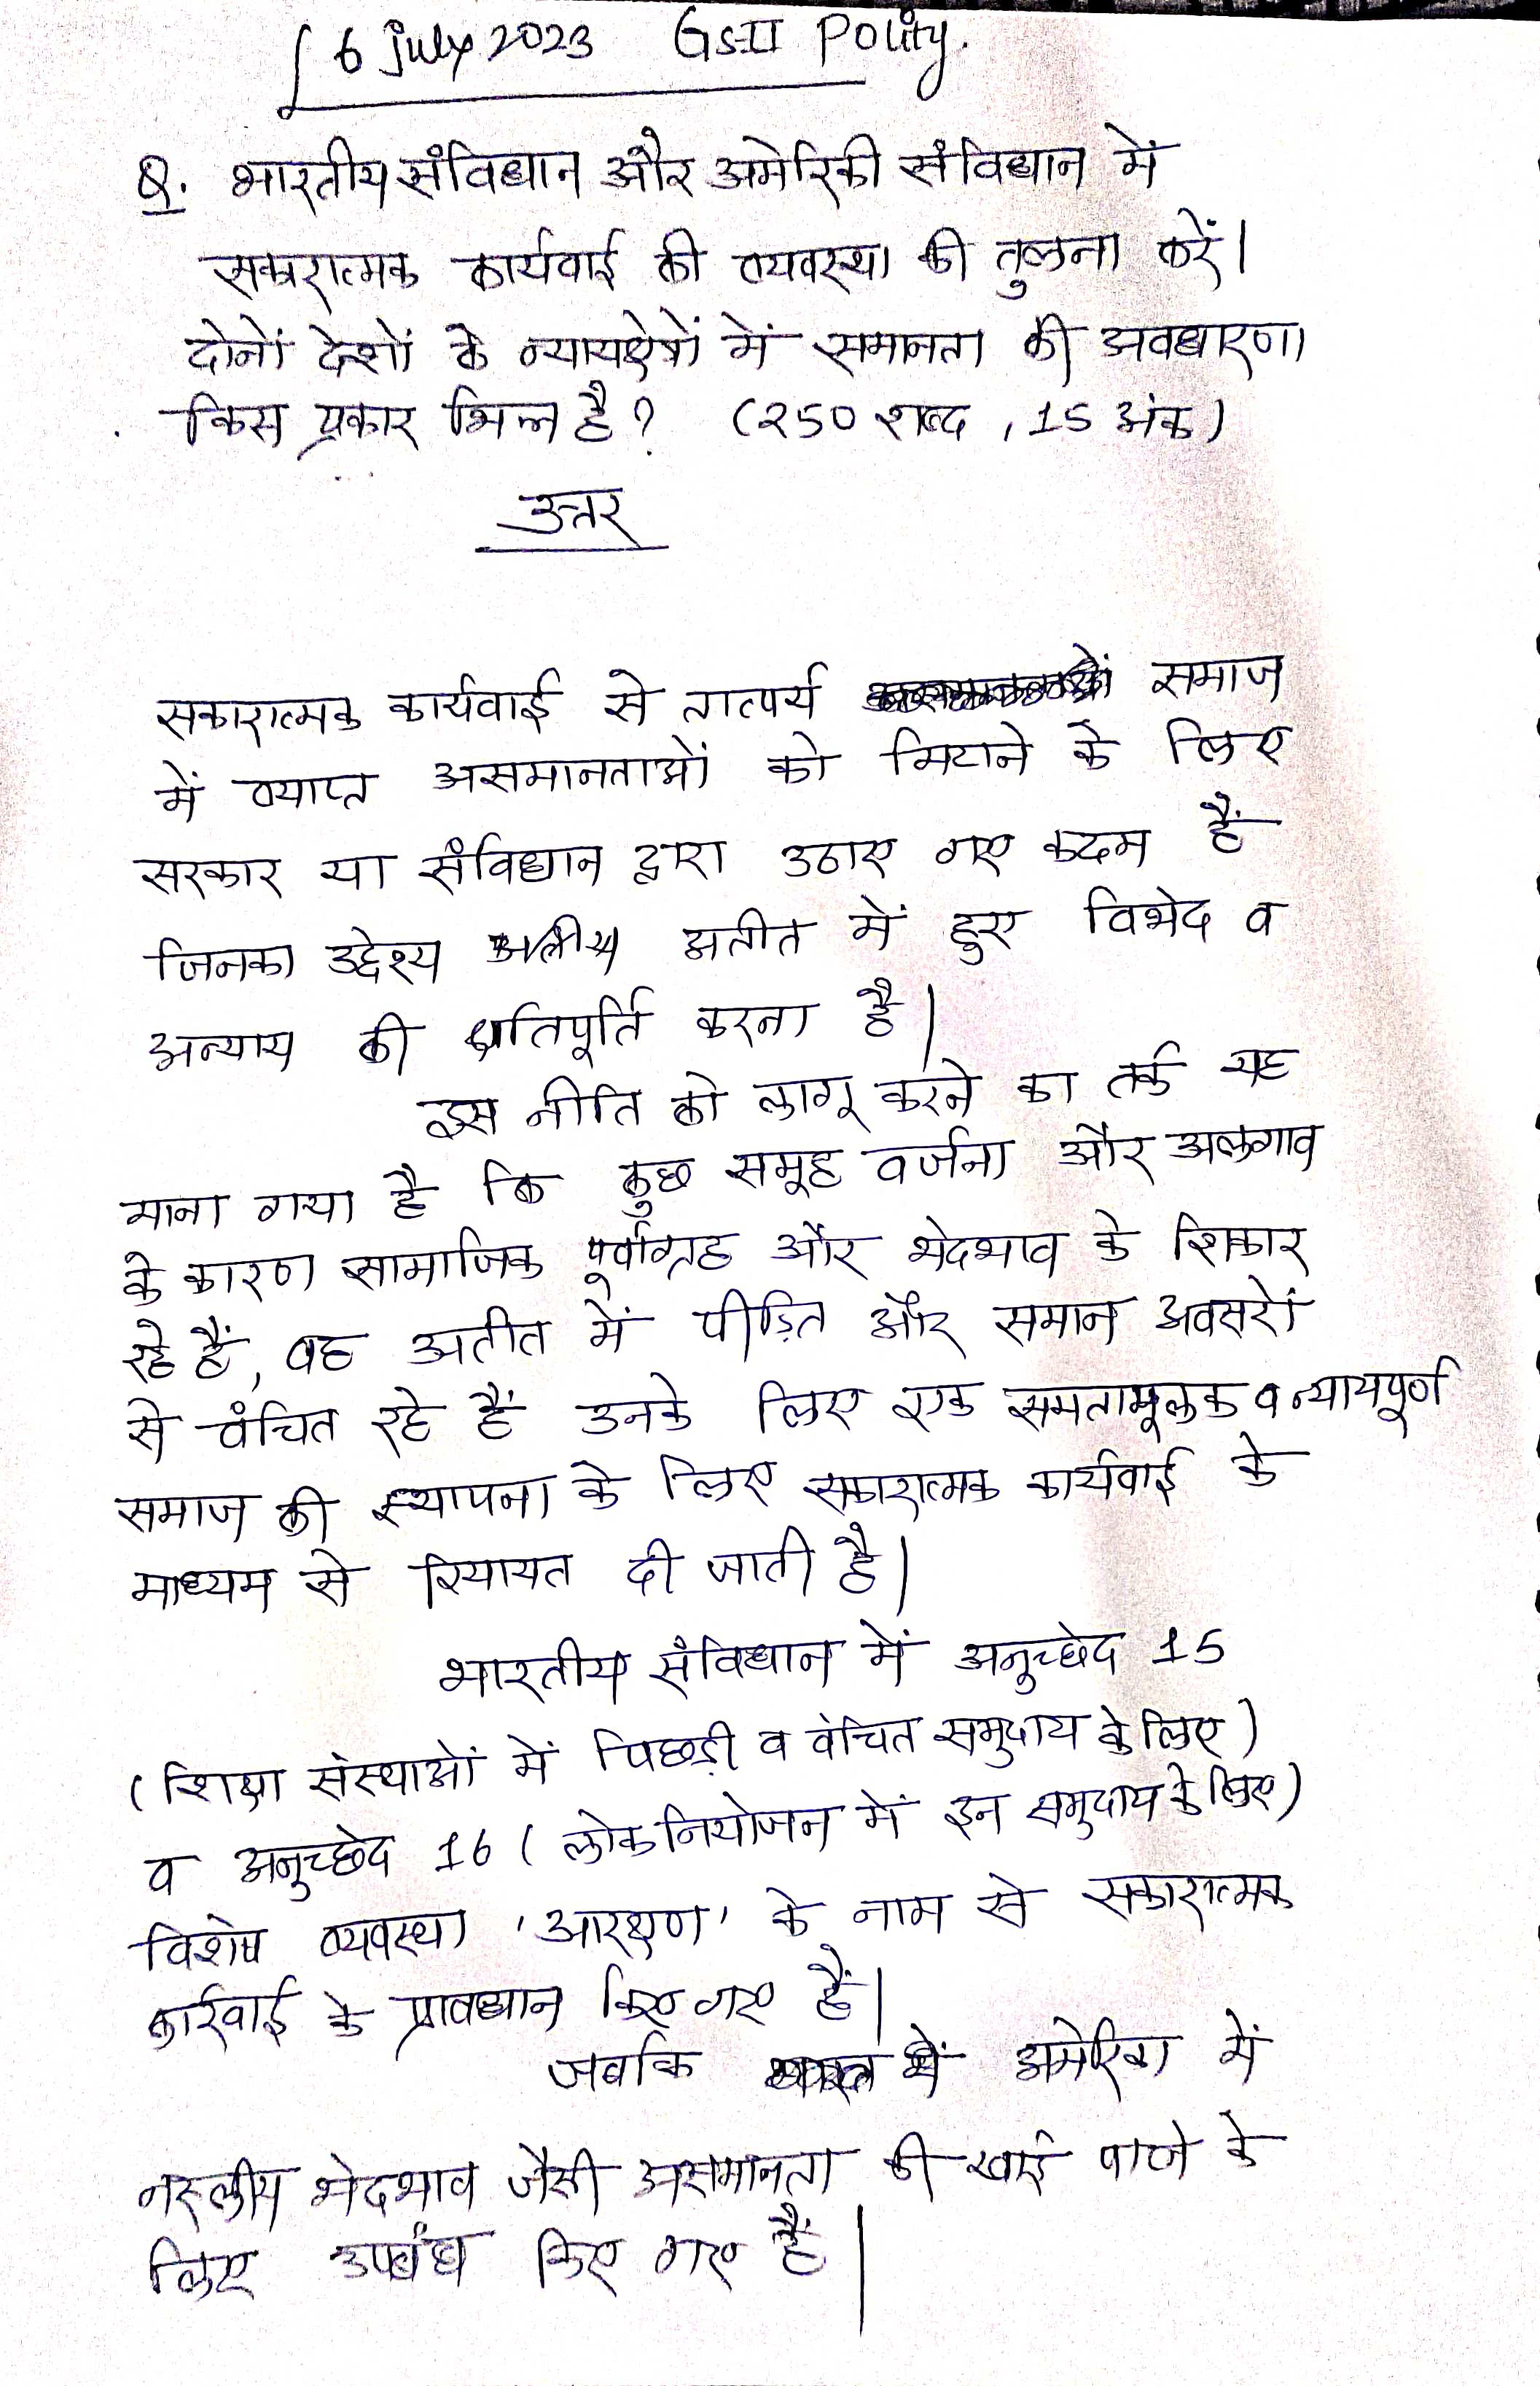 6 July 2023 GS-II Polity.
Q. भारतीय संविधान और अमेरिकी संविधान में
सकारात्मक कार्यवाई की व्यवस्था की तुलना करें।
दोनों देशों के न्यायक्षेत्रों में समानता की अवधारणा
किस प्रकार भिन्न है? (250 शब्द, 15 अंक)
उत्तर
सकारात्मक कार्यवाई से तात्पर्य समाज
में व्याप्त असमानताओं को मिटाने के लिए
सरकार या संविधान द्वारा उठाए गए कदम हैं
जिनका उद्देश्य अतीत में हुए विभेद व
अन्याय की क्षतिपूर्ति करना है।
इस नीति को लागू करने का तर्क यह
माना गया है कि कुछ समूह वर्जना और अलगाव
के कारण सामाजिक पूर्वाग्रह और भेदभाव के शिकार
रहे हैं, वह अतीत में पीड़ित और समान अवसरों
से वंचित रहे हैं उनके लिए एक समतामूलक व न्यायपूर्ण
समाज की स्थापना के लिए सकारात्मक कार्यवाई के
माध्यम से रियायत दी जाती है।
भारतीय संविधान में अनुच्छेद 15
(शिक्षा संस्थाओं में पिछड़ी व वंचित समुदाय के लिए)
व अनुच्छेद 16 (लोकनियोजन में इन समुदाय के लिए)
विशेष व्यवस्था 'आरक्षण' के नाम से सकारात्मक
कार्रवाई के प्रावधान किए गए हैं।
जबकि अमेरिका में
नस्लीय भेदभाव जैसी असमानता की खाई पाटने के
लिए उपबंध किए गए हैं।